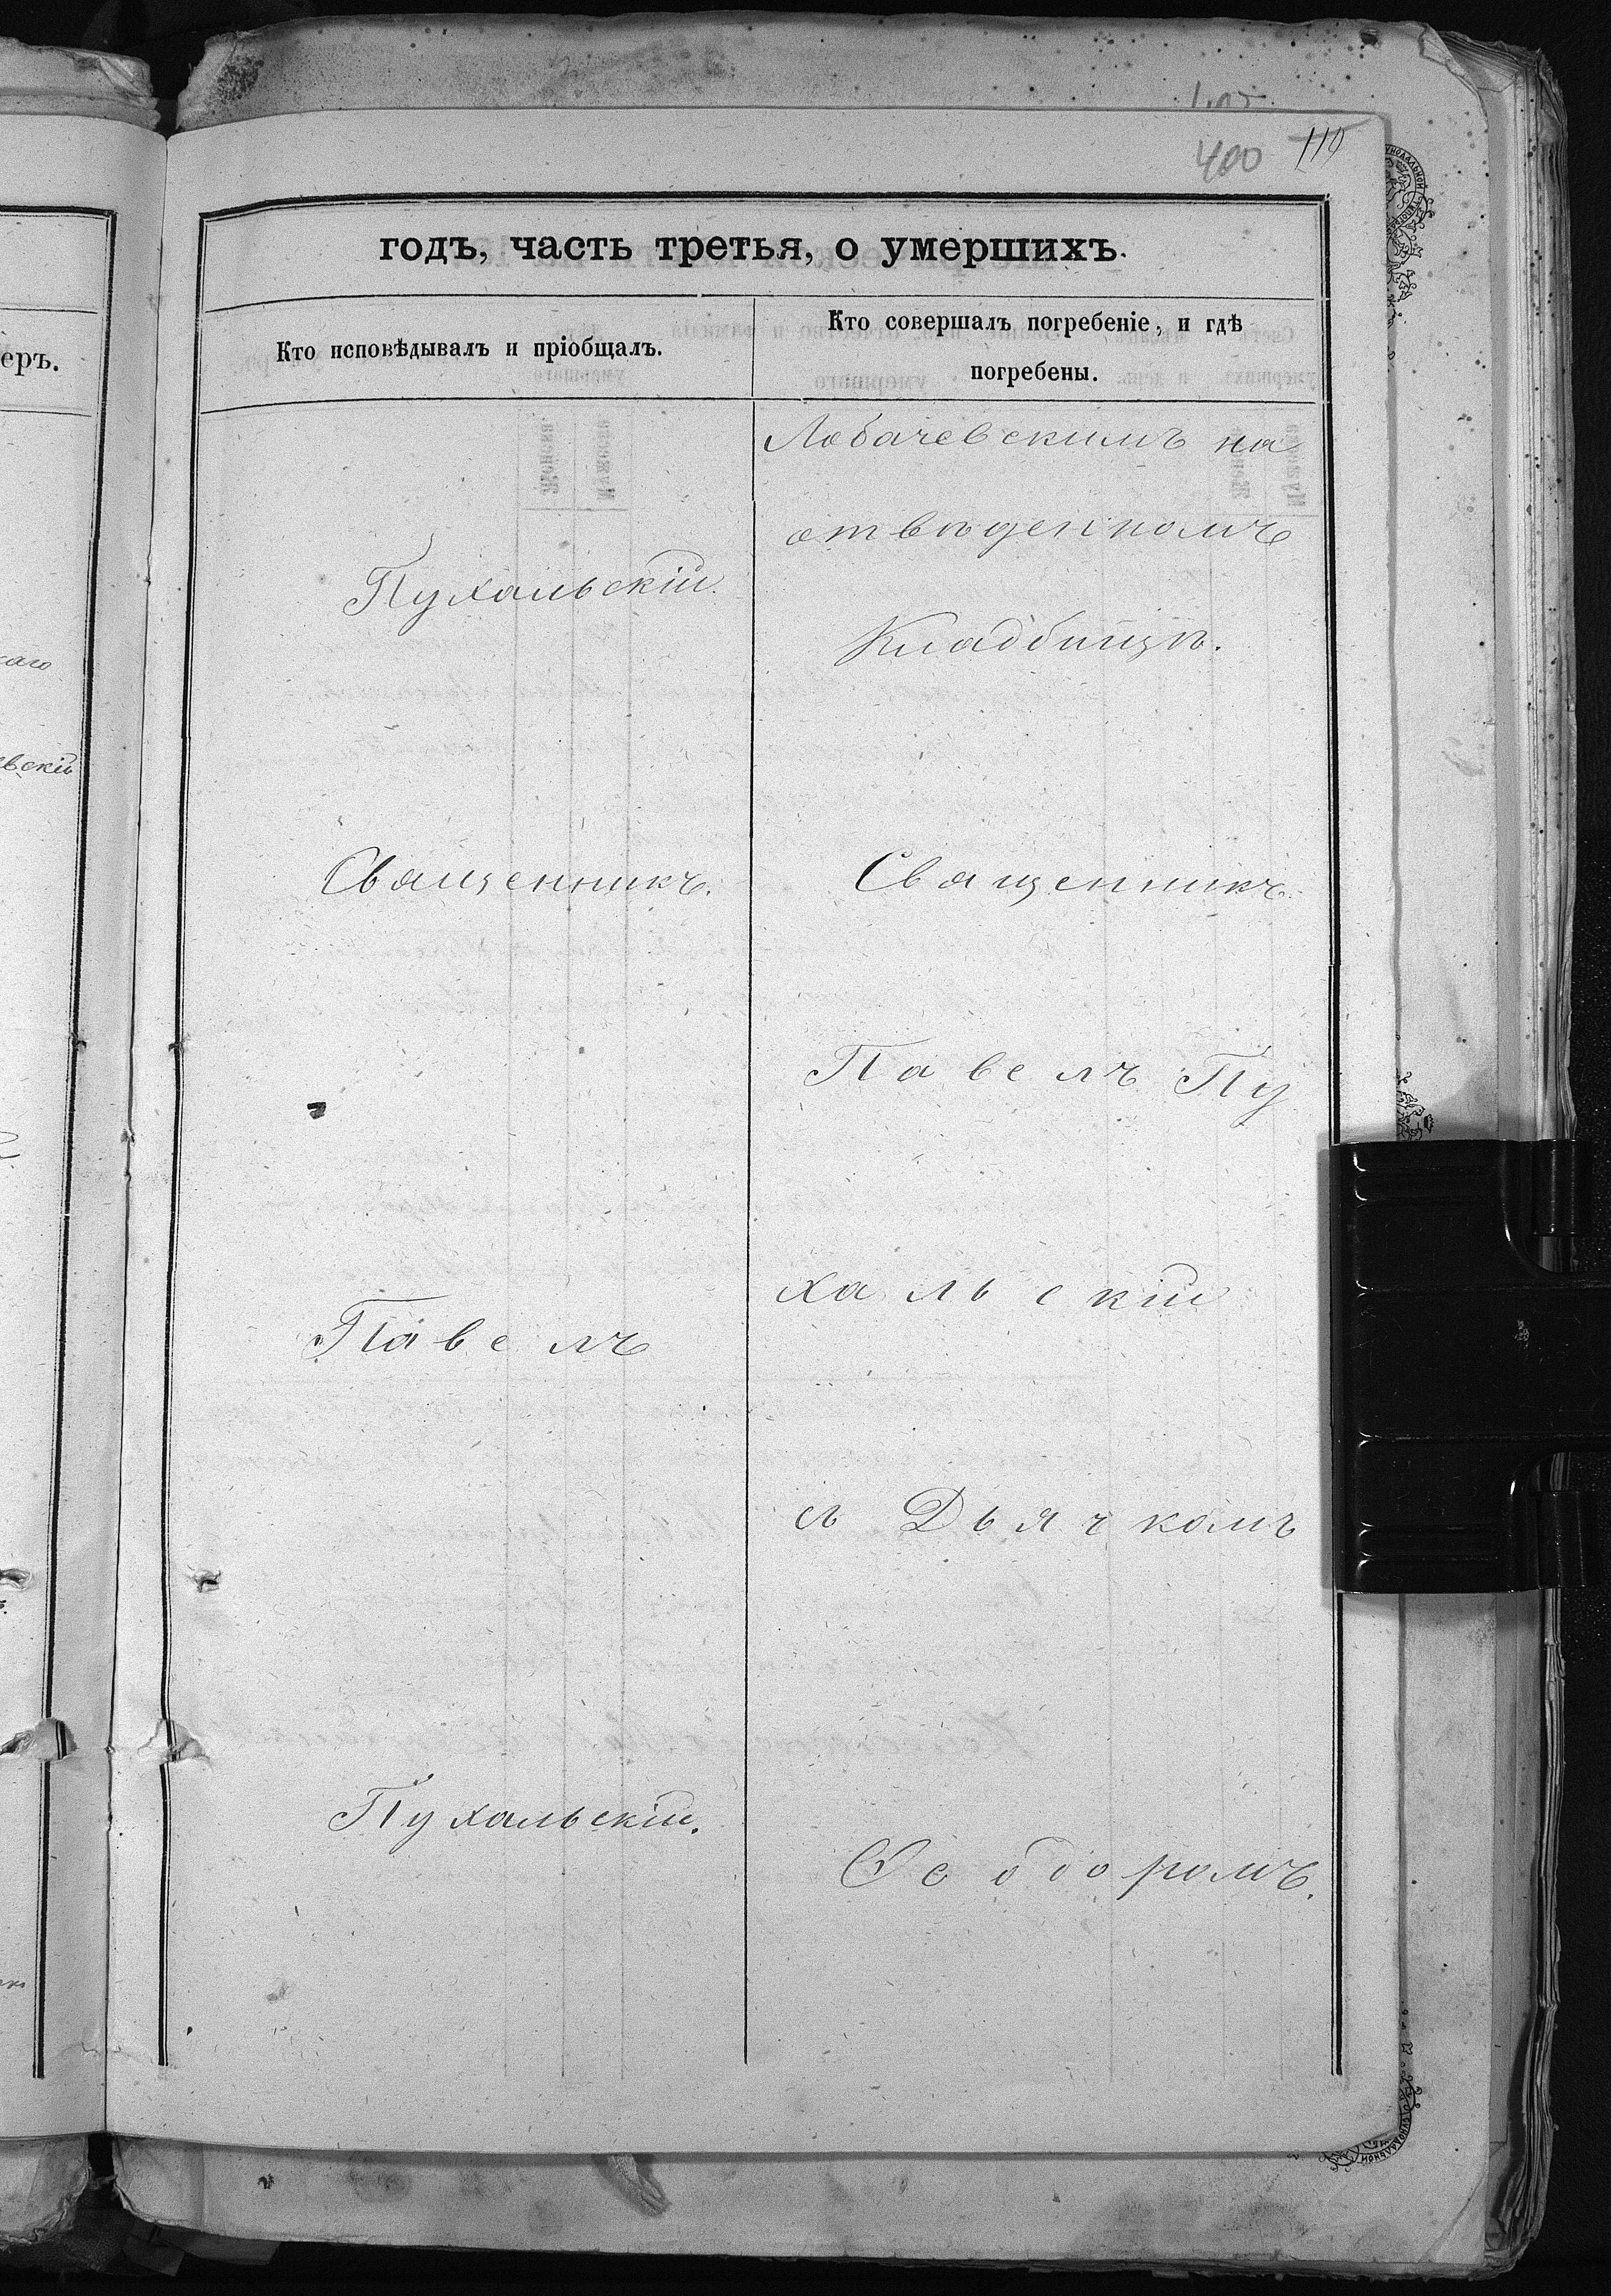 400 119
годъ, часть третья, о умершихъ.
Кто исповѣдывалъ и пріобщалъ.
Кто совершалъ погребеніе, и гдѣ
погребены.
еръ.
Пухальскій.
Священникъ.
Павелъ
Пухальскій.
Лобачевскимъ на
отвѣденномъ
Кладбищѣ.
Священникъ
Павелъ Пу
хальскій
съ Дьячкомъ
Ѳеодоромъ.